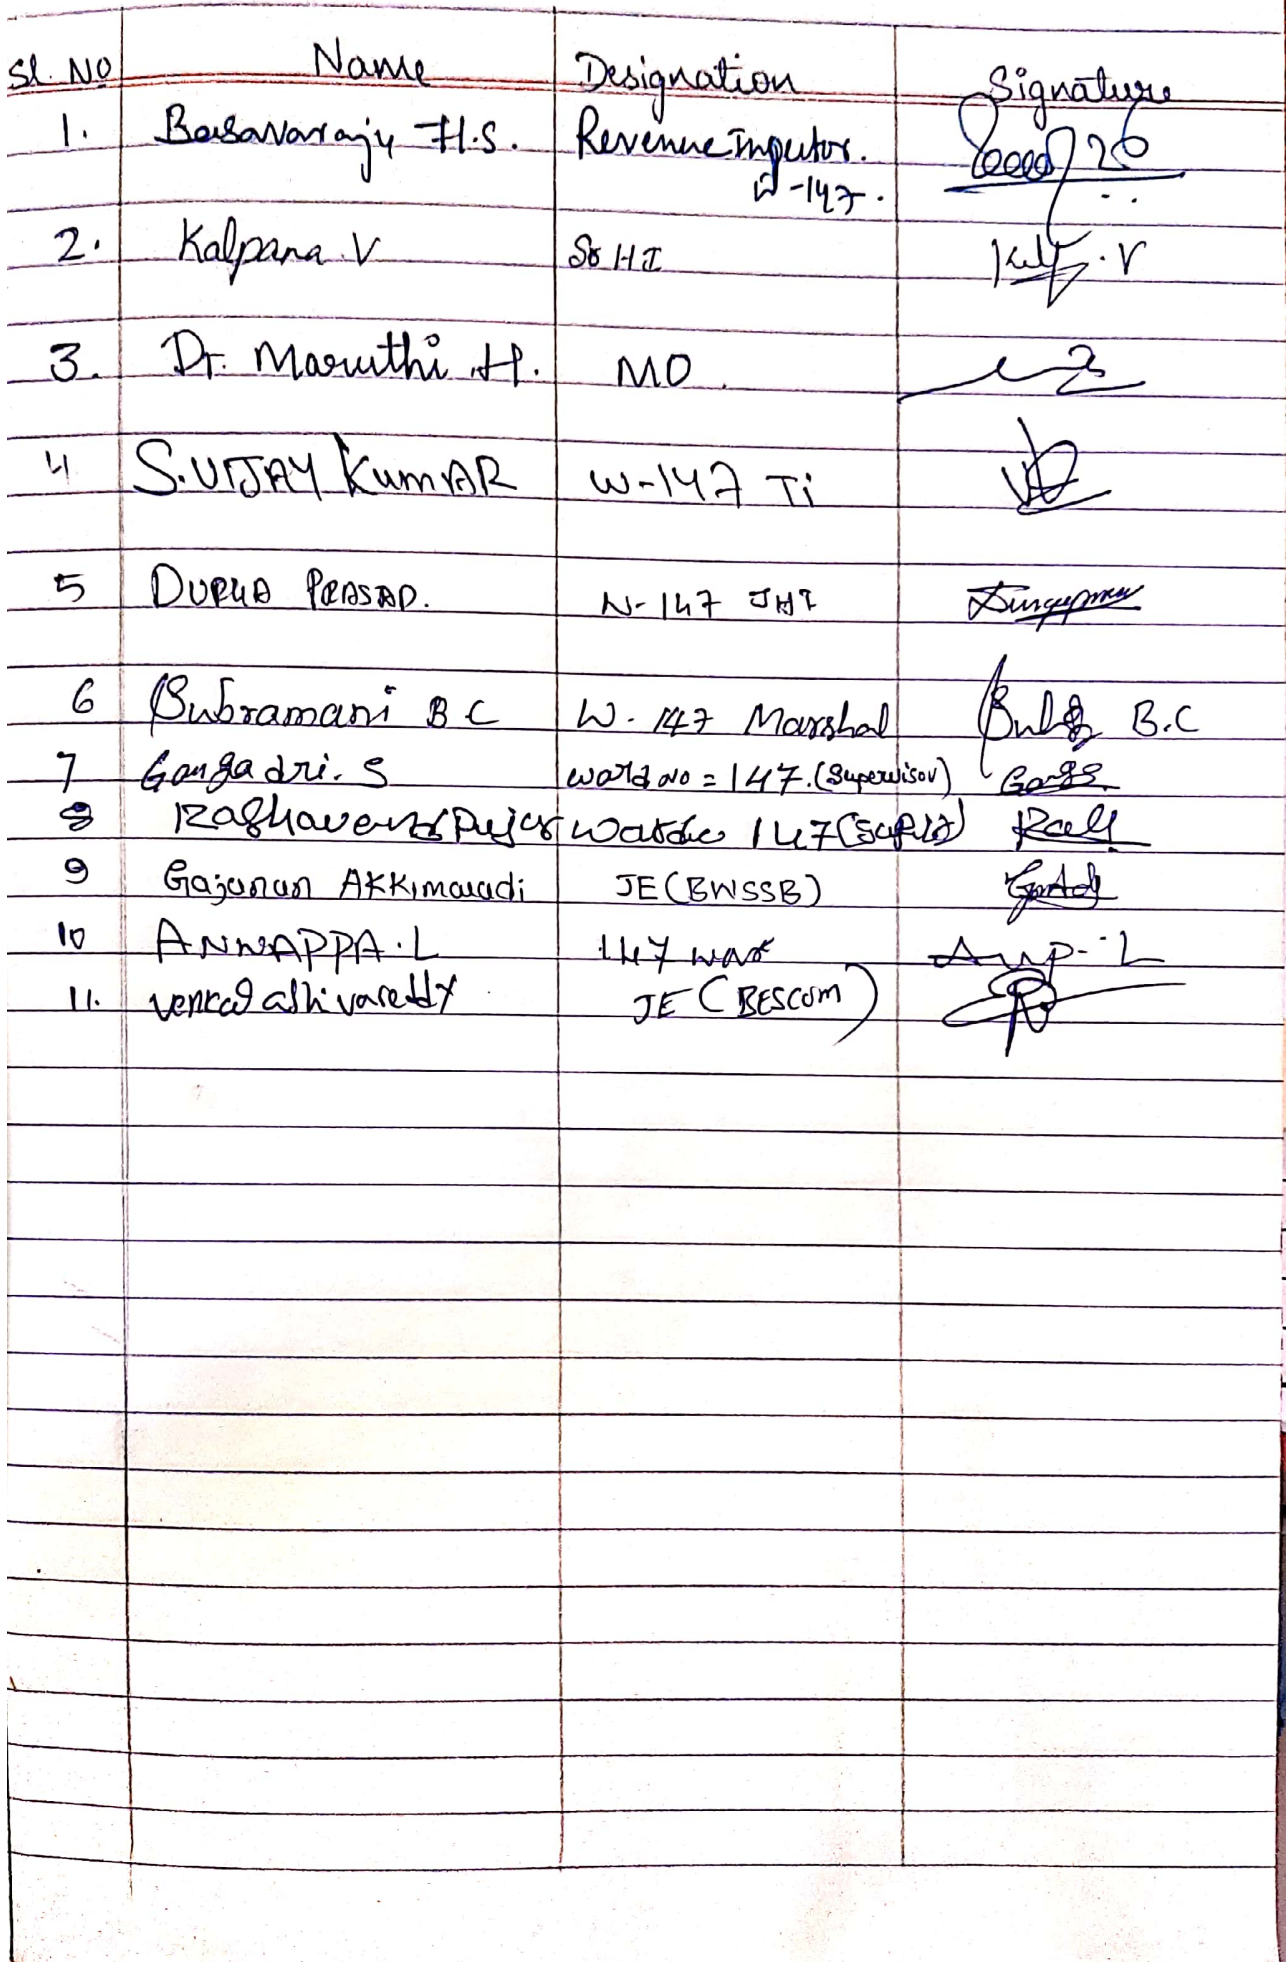 Sl. No Name Designation Signature
1. Basavaraju H.S. Revenue Inpector.
W-147.
2. Kalpana. V HI
3. Dr. Maruthi .H. MO.
4 S.VIJAY KUMAR W-147 Ti
5 DURGA PRASAD. W-147 JHI
6 Subramani B C W. 147 Marshal B.C
7 Gangadri. S ward no = 147. (Supervisor)
8 Raghavend Pujar 147
9 Gajanan AKKimaradi JE (BWSSB)
10 ANNAPPA.L 147 war
11. venkatashivareddy JE (BESCOM)